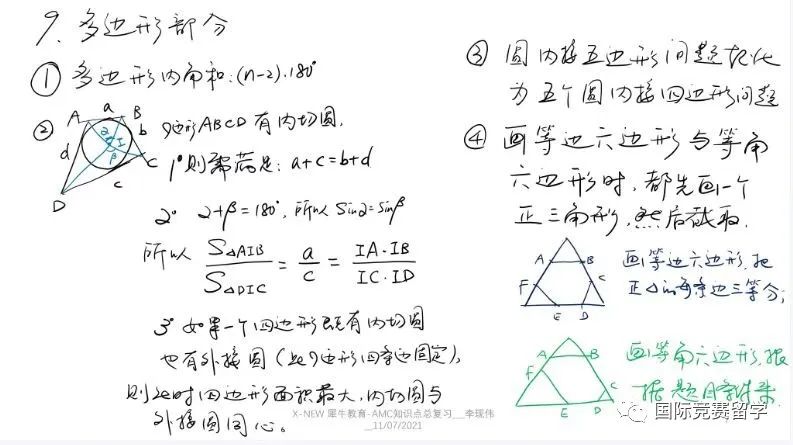 9. 多边形部分
① 多边形内角和:(n-2)·180°
② A a B
b
d
α I
β
C
c
D
4边形ABCD有内切圆.
1° 则需满足: a+c=b+d
2° α+β=180°, 所以 sinα=sinβ
所以 S△AIB / S△DIC = a / c = IA·IB / IC·ID
3° 如果一个四边形既有内切圆
也有外接圆 (此4边形四条边固定),
则此时四边形面积最大, 内切圆与
外接圆同心.
③ 圆内接五边形问题转化
为五个圆内接四边形问题
④ 画等边六边形与等角
六边形时, 都先画一个
正三角形, 然后截取.
A B
F C
E D
画等边六边形, 把
正△的每条边三等分;
A B
F C
E D
画等角六边形, 根
据题目条件来
X-NEW 犀牛教育-AMC知识点总复习__李现伟
__11/07/2021
国际竞赛留学